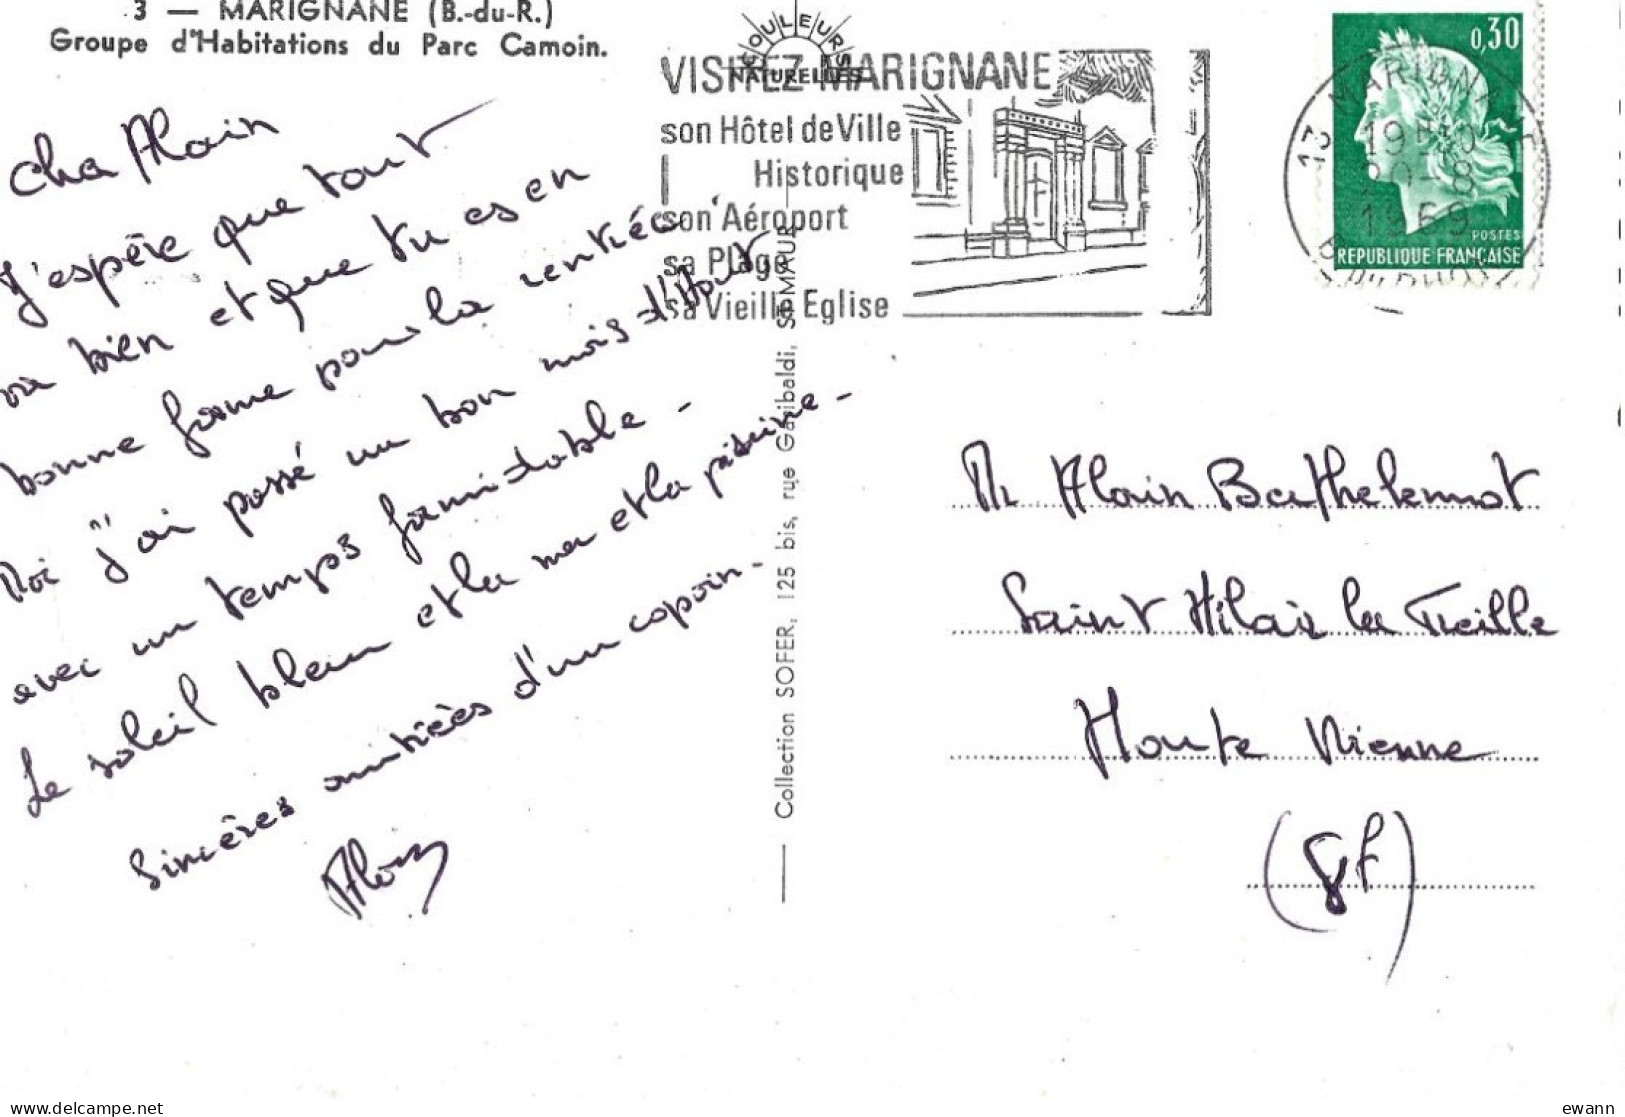 3 — MARIGNANE (B.-du-R.)
Groupe d'Habitations du Parc Camoin.
COULEURS
NATURELLES
VISITEZ MARIGNANE
son Hôtel de Ville
Historique
son Aéroport
sa Plage
sa Vieille Eglise
0,30
POSTES
REPUBLIQUE FRANÇAISE
13 MARIGNANE
20-8
1969
Cher Alain
J'espère que tout
va bien et que tu es en
bonne forme pour la rentrée.
Moi j'ai passé un bon mois d'Août
avec un temps formidable -
Le soleil bleu et la mer et la piscine -
Sincères amitiées d'un copain -
Alain
Collection SOFER, 125 bis, rue Garibaldi, ST-MAUR
Mr Alain Barthelemot
Saint Hilair la Treille
Haute Vienne
(87)
ewann